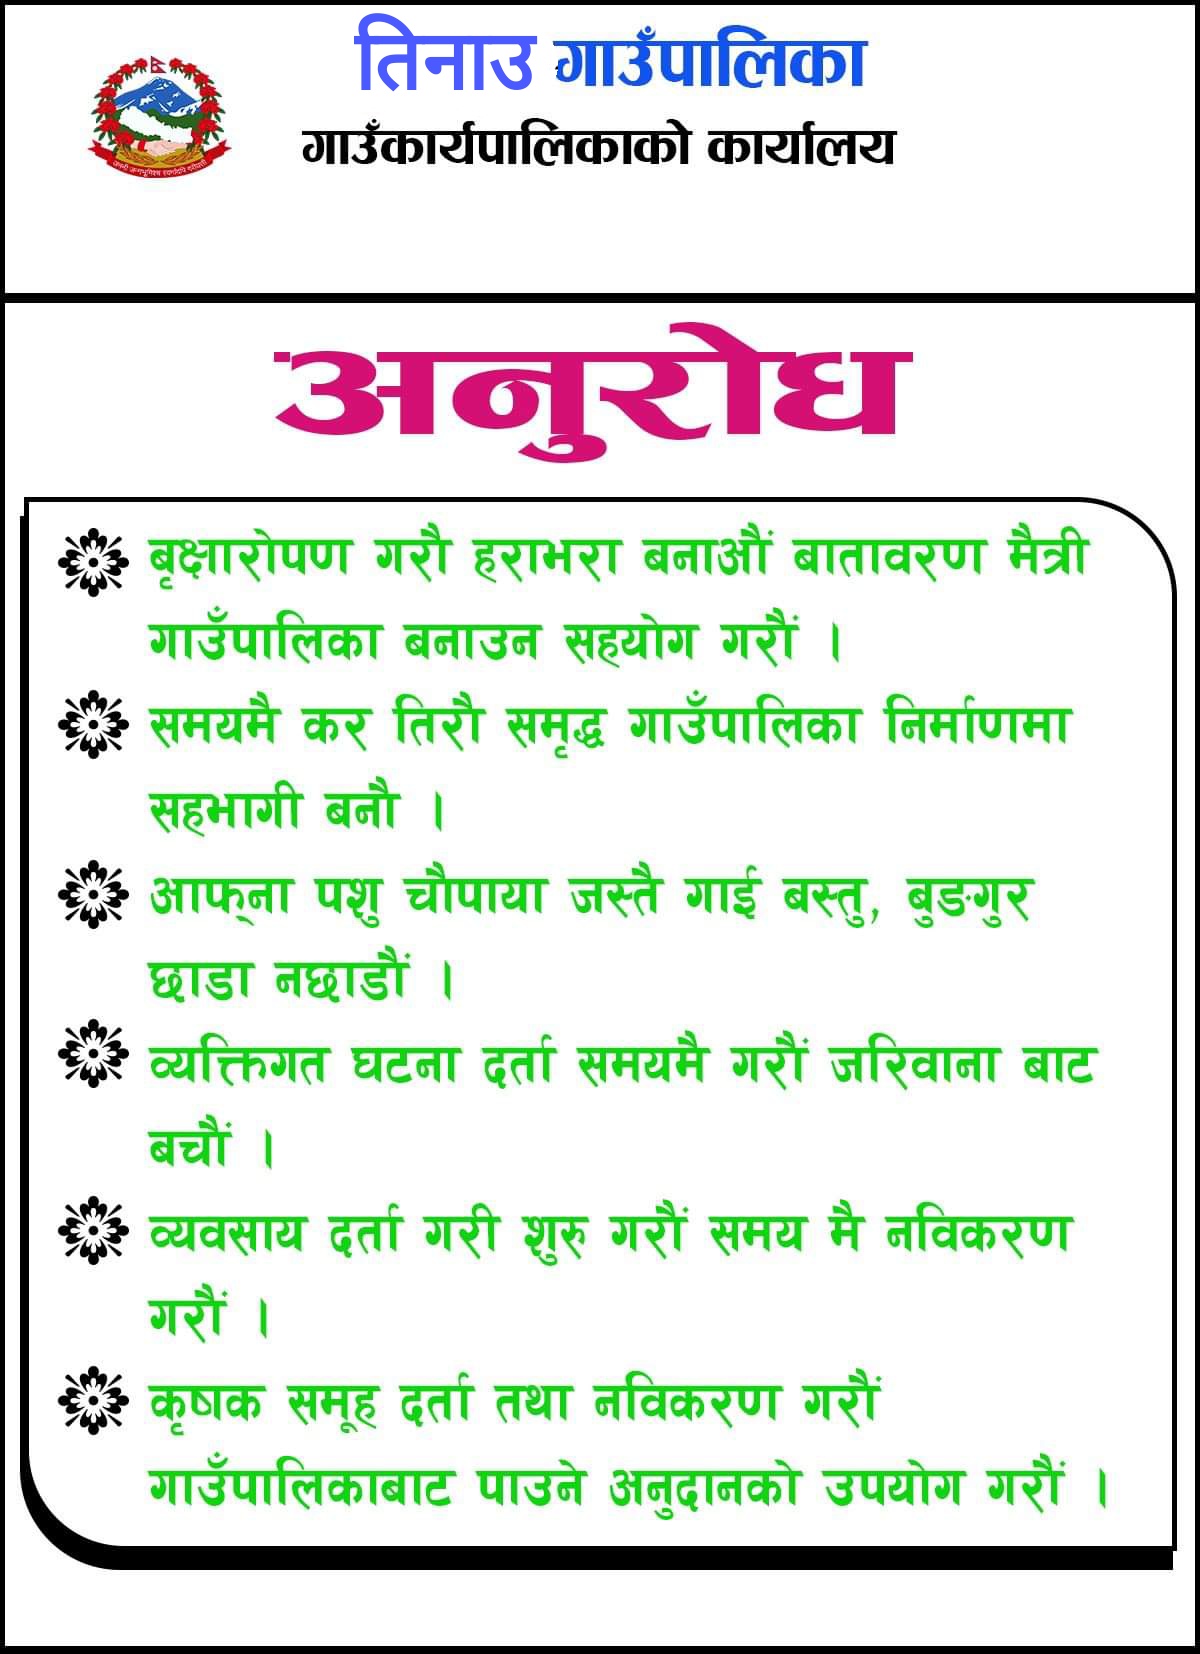 तिनाउ गाउँपालिका
गाउँकार्यपालिकाको कार्यालय
अनुरोध
बृक्षारोपण गरौ हराभरा बनाऔं बातावरण मैत्री
गाउँपालिका बनाउन सहयोग गरौं ।
समयमै कर तिरौ समृद्ध गाउँपालिका निर्माणमा
सहभागी बनौ ।
आफ्‌ना पशु चौपाया जस्तै गाई बस्तु, बुङगुर
छाडा नछाडौं ।
व्यक्तिगत घटना दर्ता समयमै गरौं जरिवाना बाट
बचौं ।
व्यवसाय दर्ता गरी शुरु गरौं समय मै नविकरण
गरौं ।
कृषक समूह दर्ता तथा नविकरण गरौं
गाउँपालिकाबाट पाउने अनुदानको उपयोग गरौं ।